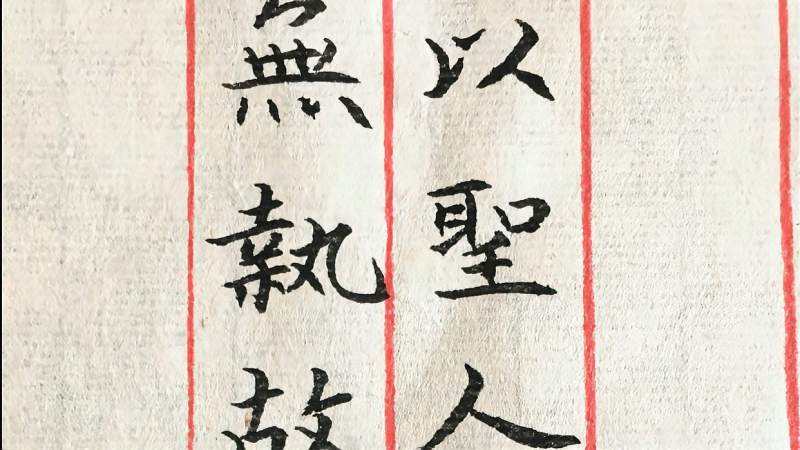 以聖人
無執故